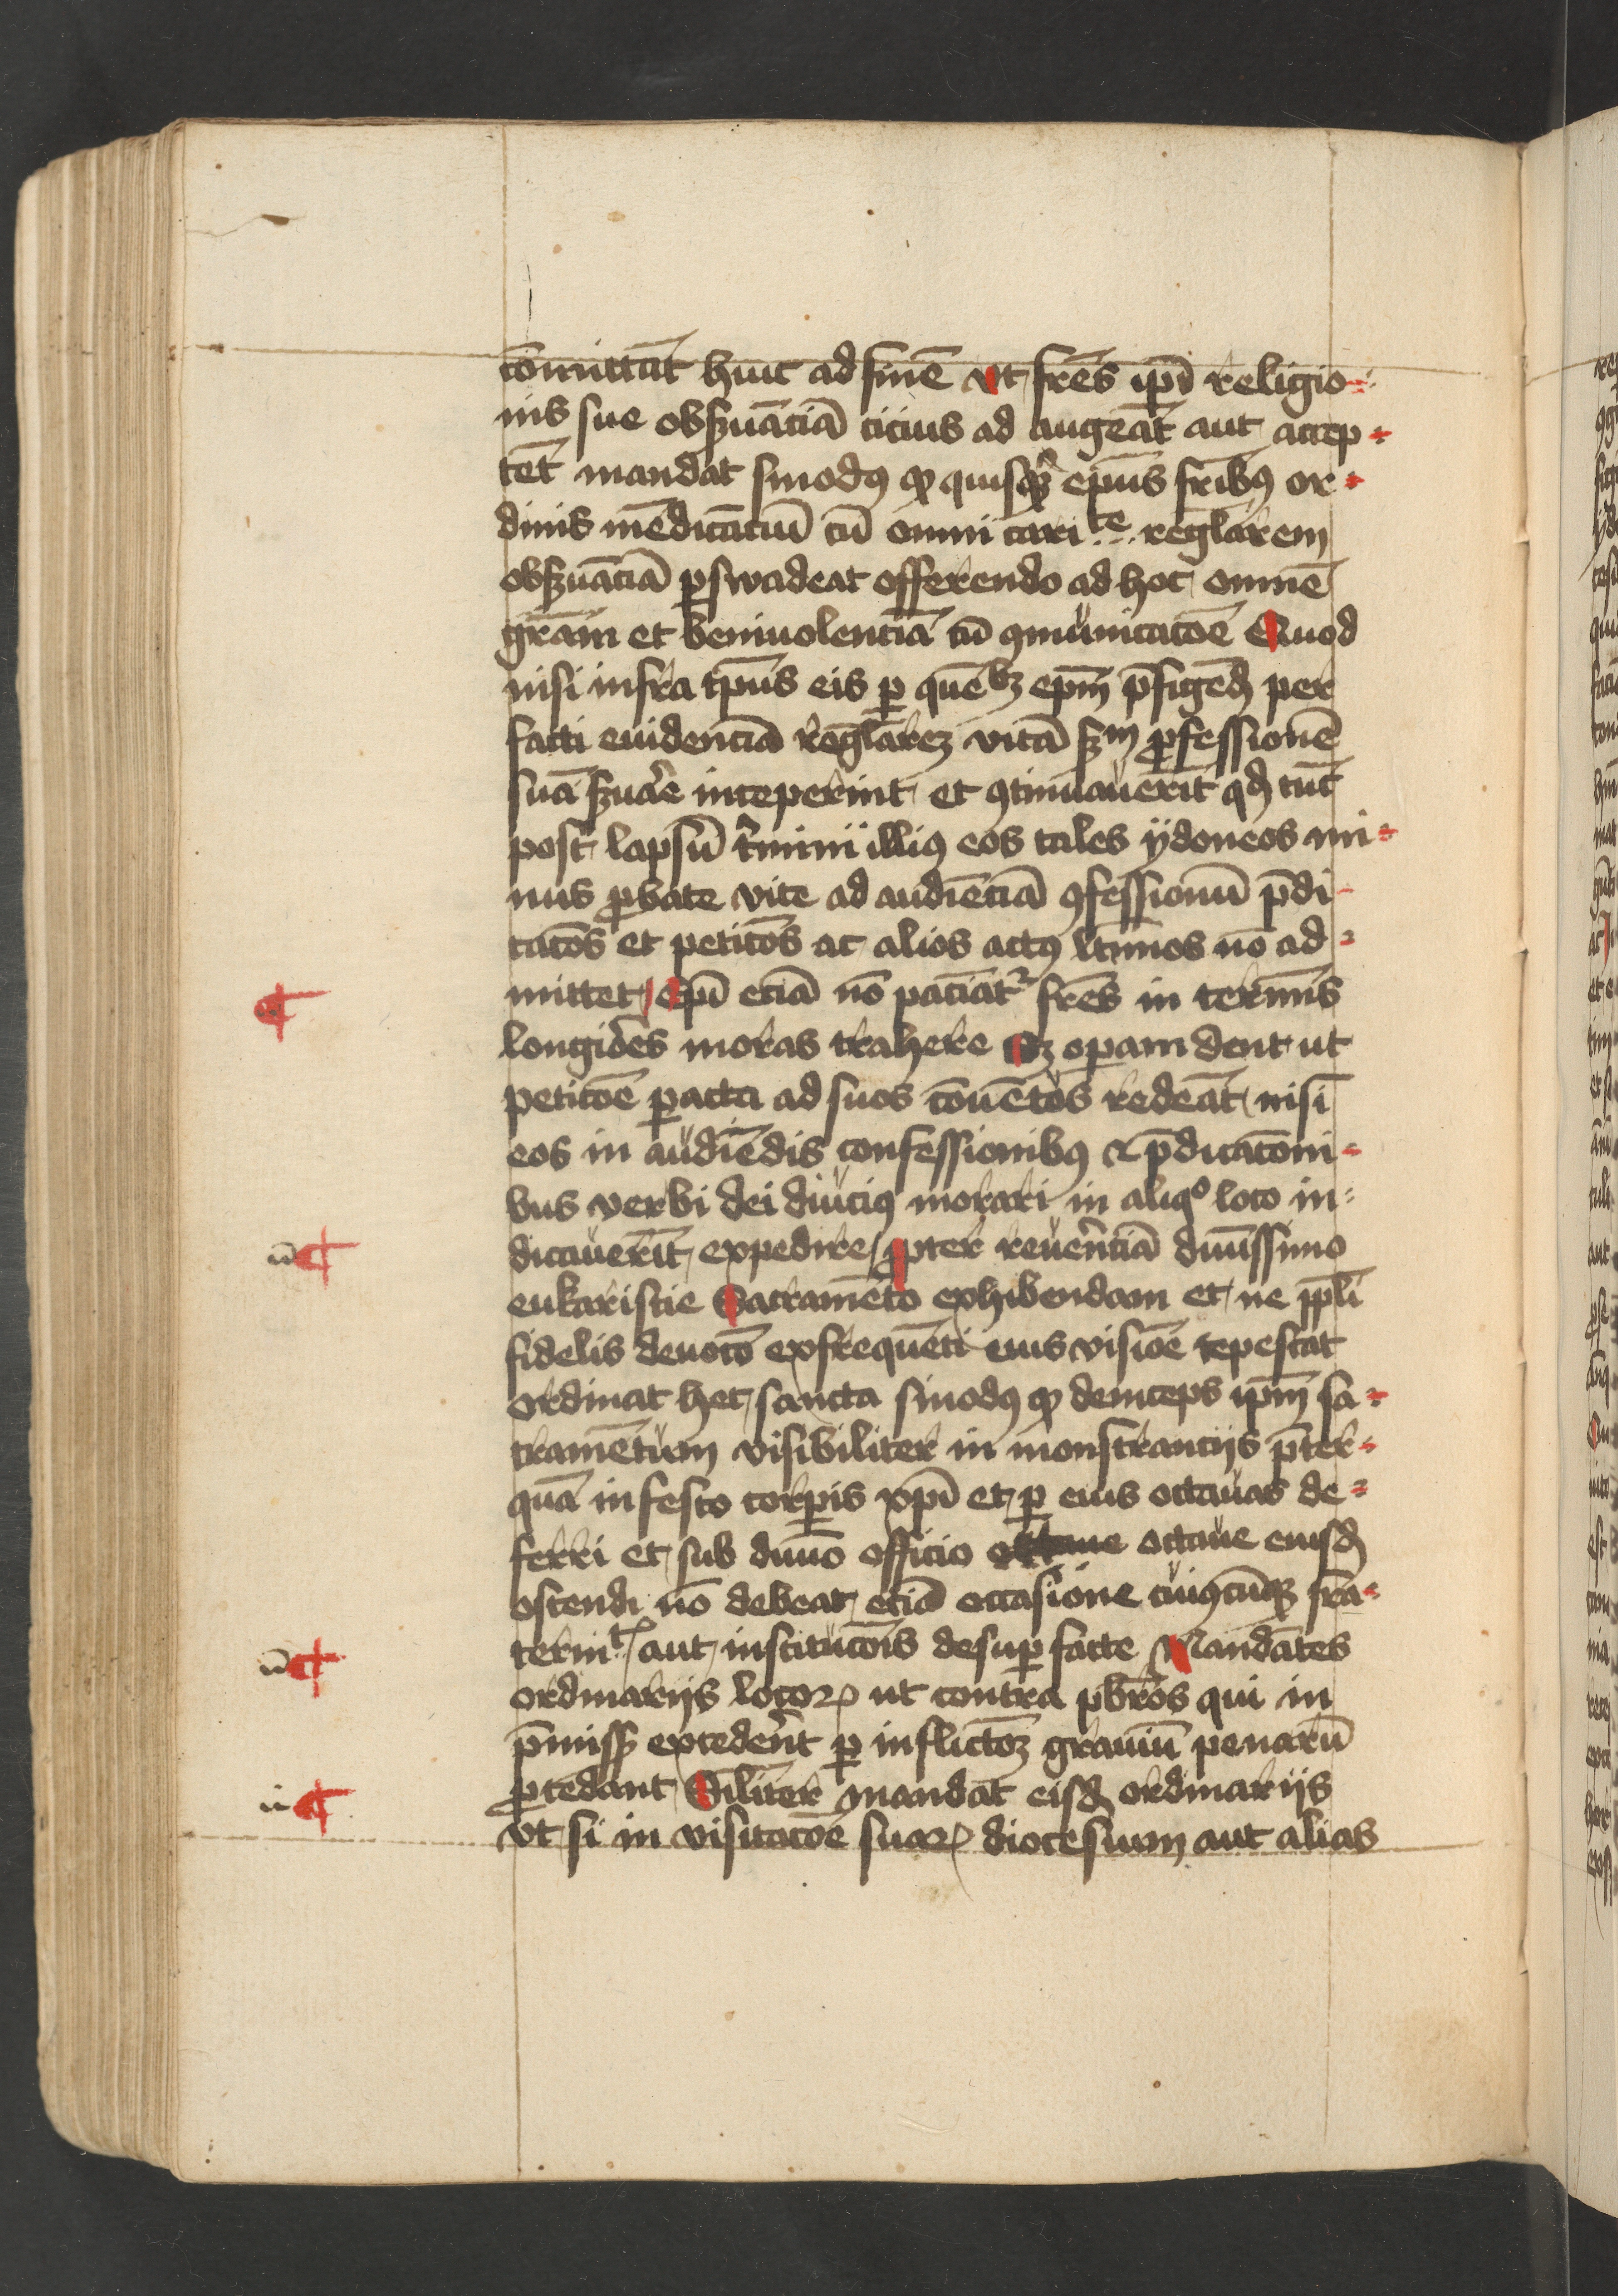 cōmittāt huic ad finē vt fr̄es ip̄i religio-
nis sue obẜuāciā cicius ad augeāt aut accep-
tēt mandat sinodꝯ ꝙ quisqꝫ ep̄us fr̄ibꝯ or-
dinis mēdicāciū cū omni cari te regl̄arem
obẜuāciā ꝑswadeat offerendo ad hoc omnē
gr̄am et beniuolenciā cū ꝯmūnicacōe Quod
nisi infra tp̄us eis ꝑ quē bꝫ ep̄m p̄figēdꝫ per
facti euidenciā regl̄arē vitā ẜm ꝓfessionē
suā ẜuar̄e inceperint et ꝯtinuauerīt qd̄ tūc
post lapsū t̄mini illiꝯ eos tales ydoneos mi-
nus ꝓbate vite ad audiēciā ꝯfessionū p̄di-
cacōs et peticōs ac alios actꝯ l̄timos nō ad-
mittet Ep̄i eciā nō paciāt᷑ fr̄es in termīs
longiores moras trahere Sꝫ operam dent ut
peticōe ꝑacta ad suos cōuētos redeāt nisi
eos in audiēdis confessionibꝯ & p̄dicacōni-
bus verbi dei diuciꝯ morari in aliqº loco in-
dicauerīt expedire ꝓpter reuer̄nciā diuīssimo
eukaristie Sacramēto exhibendam et ne ppl̄i
fidelis deuocō ex frequēti eius visiōe tepescat
ordinat hec sancta sinodꝯ ꝙ deinceps ip̄m sa-
cramētum visibiliter in monstrancijs p̄ter-
quā in festo corꝑis xp̄i et ꝑ eius octauas de-
ferri et sub diuīo officio octaue octaue eiusd̄
ostendi nō debeat eciā occasione cuiꝯcūqꝫ fra-
ternit aut institucōis desuꝑ facte Mandātes
ordinarijs locoꝝ ut contra pb̄ros qui in
p̄miss excedēt ꝑ inflictōꝫ grauiū penarū
ꝓcedant Sil̄iter mandat eisd̄ ordinarijs
vt si in visitacōe suaꝝ diocesium aut alias